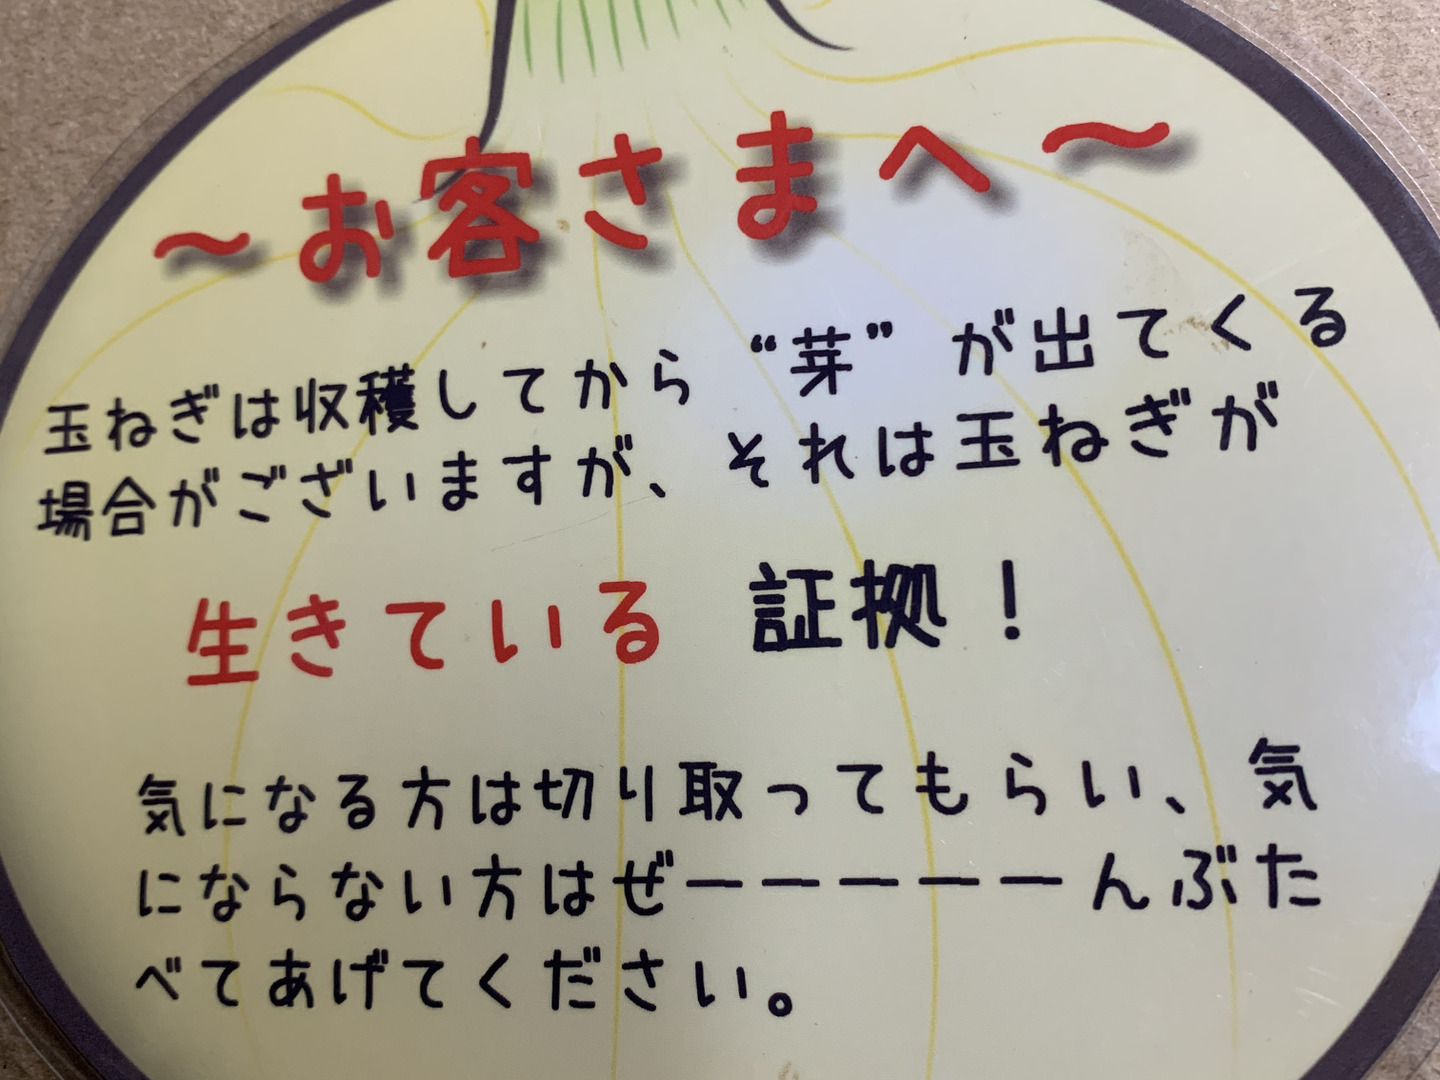 ～お客さまへ～
玉ねぎは収穫してから“芽”が出てくる
場合がございますが、それは玉ねぎが
生きている 証拠！
気になる方は切り取ってもらい、気
にならない方はぜーーーーーんぶた
べてあげてください。